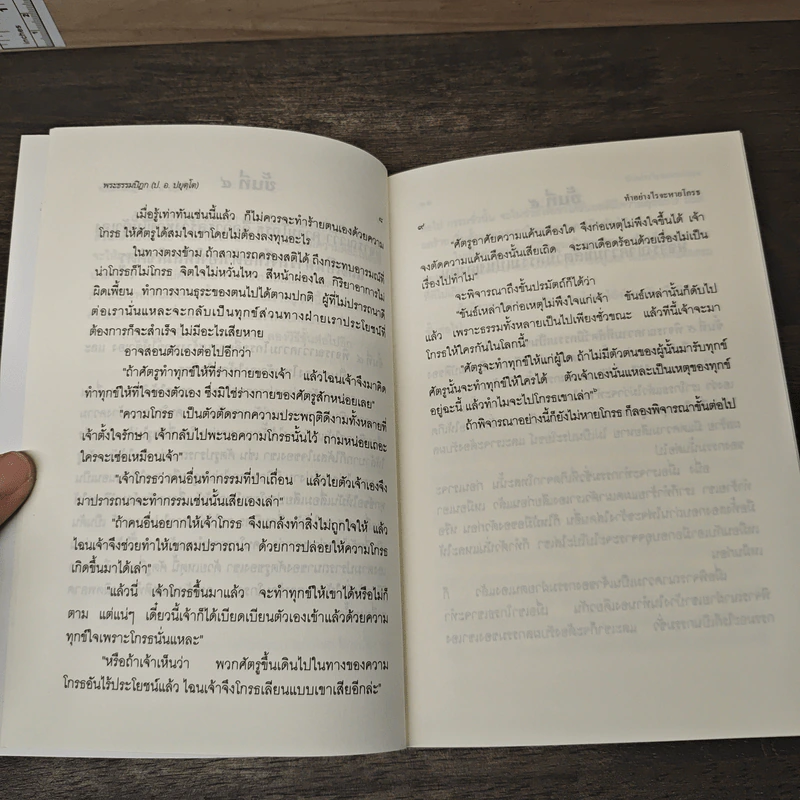 พระธรรมปิฎก (ป. อ. ปยุตฺโต)
๘
เมื่อรู้เท่าทันเช่นนี้แล้ว ก็ไม่ควรจะทำร้ายตนเองด้วยความ
โกรธ ให้ศัตรูได้สมใจเขาโดยไม่ต้องลงทุนอะไร
ในทางตรงข้าม ถ้าสามารถครองสติได้ ถึงกระทบอารมณ์ที่
น่าโกรธก็ไม่โกรธ จิตใจไม่หวั่นไหว สีหน้าผ่องใส กิริยาอาการไม่
ผิดเพี้ยน ทำการงานธุระของตนไปได้ตามปกติ ผู้ที่ไม่ปรารถนาดี
ต่อเรานั่นแหละจะกลับเป็นทุกข์ ส่วนทางฝ่ายเราประโยชน์ที่
ต้องการก็จะสำเร็จ ไม่มีอะไรเสียหาย
อาจสอนตัวเองต่อไปอีกว่า
"ถ้าศัตรูทำทุกข์ให้ที่ร่างกายของเจ้า แล้วไฉนเจ้าจึงมาคิด
ทำทุกข์ให้ที่ใจของตัวเอง ซึ่งมิใช่ร่างกายของศัตรูสักหน่อยเลย"
"ความโกรธ เป็นตัวตัดรากความประพฤติดีงามทั้งหลายที่
เจ้าตั้งใจรักษา เจ้ากลับไปพะนอความโกรธนั้นไว้ ถามหน่อยเถอะ
ใครจะเซ่อเหมือนเจ้า"
"เจ้าโกรธว่าคนอื่นทำกรรมที่ป่าเถื่อน แล้วไยตัวเจ้าเองจึง
มาปรารถนาจะทำกรรมเช่นนั้นเสียเองเล่า"
"ถ้าคนอื่นอยากให้เจ้าโกรธ จึงแกล้งทำสิ่งไม่ถูกใจให้ แล้ว
ไฉนเจ้าจึงช่วยทำให้เขาสมปรารถนา ด้วยการปล่อยให้ความโกรธ
เกิดขึ้นมาได้เล่า"
"แล้วนี่ เจ้าโกรธขึ้นมาแล้ว จะทำทุกข์ให้เขาได้หรือไม่ก็
ตาม แต่แน่ๆ เดี๋ยวนี้เจ้าก็ได้เบียดเบียนตัวเองเข้าแล้วด้วยความ
ทุกข์ใจเพราะโกรธนั่นแหละ"
"หรือถ้าเจ้าเห็นว่า พวกศัตรูขึ้นเดินไปในทางของความ
โกรธอันไร้ประโยชน์แล้ว ไฉนเจ้าจึงโกรธเลียนแบบเขาเสียอีกล่ะ"
ทำอย่างไรจะหายโกรธ
๙
"ศัตรูอาศัยความแค้นเคืองใด จึงก่อเหตุไม่พึงใจขึ้นได้ เจ้า
จงตัดความแค้นเคืองนั้นเสียเถิด จะมาเดือดร้อนด้วยเรื่องไม่เป็น
เรื่องไปทำไม"
จะพิจารณาถึงขั้นปรมัตถ์ก็ได้ว่า
"ขันธ์เหล่าใดก่อเหตุไม่พึงใจแก่เจ้า ขันธ์เหล่านั้นก็ดับไป
แล้ว เพราะธรรมทั้งหลายเป็นไปเพียงชั่วขณะ แล้วทีนี้เจ้าจะมา
โกรธให้ใครกันในโลกนี้"
"ศัตรูจะทำทุกข์ให้แก่ผู้ใด ถ้าไม่มีตัวตนของผู้นั้นมารับทุกข์
ศัตรูนั้นจะทำทุกข์ให้ใครได้ ตัวเจ้าเองนั่นแหละเป็นเหตุของทุกข์
อยู่ฉะนี้ แล้วทำไมจะไปโกรธเขาเล่า"
ถ้าพิจารณาอย่างนี้ก็ยังไม่หายโกรธ ก็ลองพิจารณาขั้นต่อไป